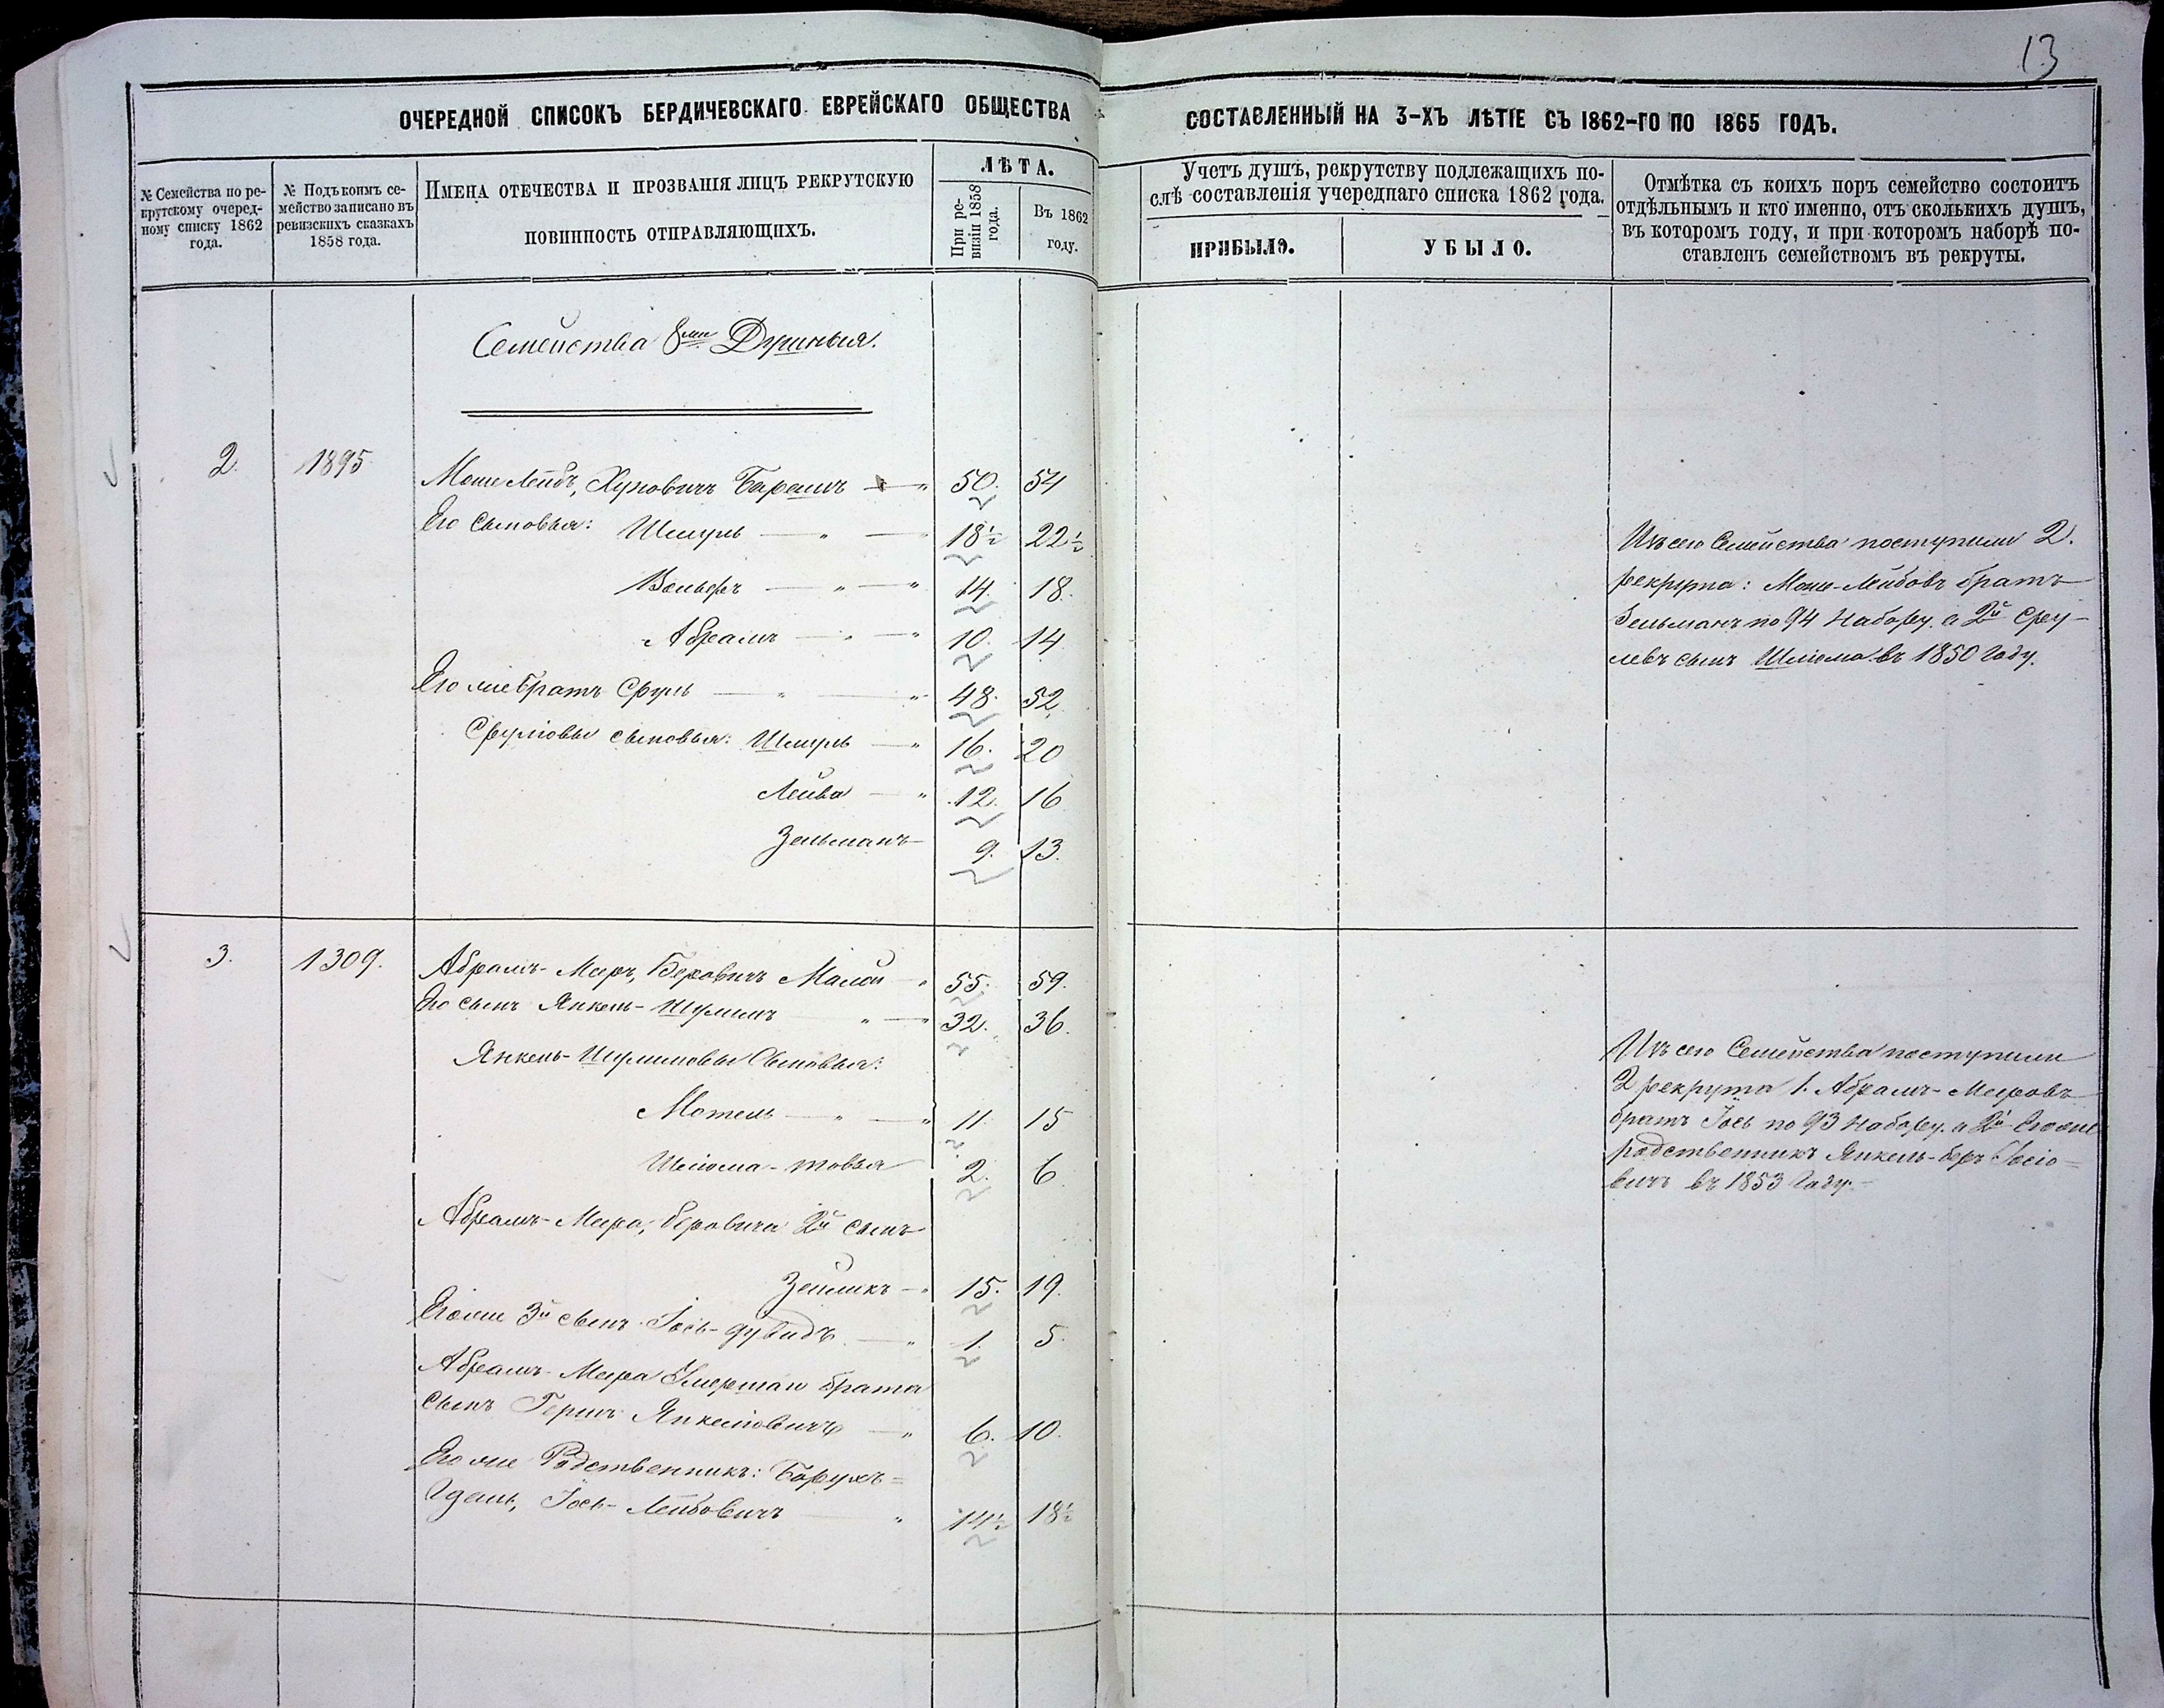 13
ОЧЕРЕДНОЙ СПИСОКЪ БЕРДИЧЕВСКАГО ЕВРЕЙСКАГО ОБЩЕСТВА
СОСТАВЛЕННЫЙ НА 3-ХЪ ЛѢТІЕ СЪ 1862-ГО ПО 1865 ГОДЪ.
№ Семейства по ре-
крутскому очеред-
ному списку 1862
года.
№ Подъ коимъ се-
мейство записано въ
ревизскихъ сказкахъ
1858 года.
ИМЕНА ОТЕЧЕСТВА И ПРОЗВАНІЯ ЛИЦЪ РЕКРУТСКУЮ
ПОВИННОСТЬ ОТПРАВЛЯЮЩИХЪ.
ЛѢТА.
При ре-
визіи 1858
года.
Въ 1862
году.
Учетъ душъ, рекрутству подлежащихъ по-
слѣ составленія учереднаго списка 1862 года.
ПРИБЫЛО.
УБЫЛО.
Отмѣтка съ коихъ поръ семейство состоитъ
отдѣльнымъ и кто именно, отъ сколькихъ душъ,
въ которомъ году, и при которомъ наборѣ по-
ставленъ семействомъ въ рекруты.
Семейства 8ми Душныя.
2. 1895 Моше Лейбъ, Хуновичъ Барашъ — " 50. 54
Его сыновья: Шмуль — " — " 18½ 22½
Вольфъ — " — " 14. 18.
Абрамъ — " — " 10. 14
Его же братъ Сруль — " — " 48. 52
Срулiовы сыновья: Шмуль — " 16. 20
Лейба — " 12. 16
Зельманъ — 9. 13.
Изъ сего Семейства поступили 2.
рекрута: Моше-Лейбовъ братъ
Зельманъ по 94 Набору. а 2й Сру-
левъ сынъ Шлiома въ 1850 Году.
3. 1309. Абрамъ-Меръ, Беровичъ Малой — " 55. 59.
Его сынъ Янкель-Шулимъ " — " 32. 36.
Янкель-Шулимовы Сыновья:
Мотель — " — " 11. 15
Шлiома-товья 2. 6
Абрамъ-Мера, Беровича 2й сынъ
Зейликъ — " 15. 19.
Его же 3й сынъ Iось-дувидъ — " 1. 5.
Абрамъ-Мера Умершаго брата
сынъ Гершъ Янкелiовичъ — " 6. 10.
Его же Родственникъ: Борухъ=
Iдель, Iось-Лейбовичъ — " 14½ 18½
Изъ сего Семейства поступили
2 рекрута 1. Абрамъ-Меровъ
братъ Iось по 93 Набору. а 2й Его же
родственникъ Янкель-беръ Iосiо=
вичъ въ 1853 Году.—